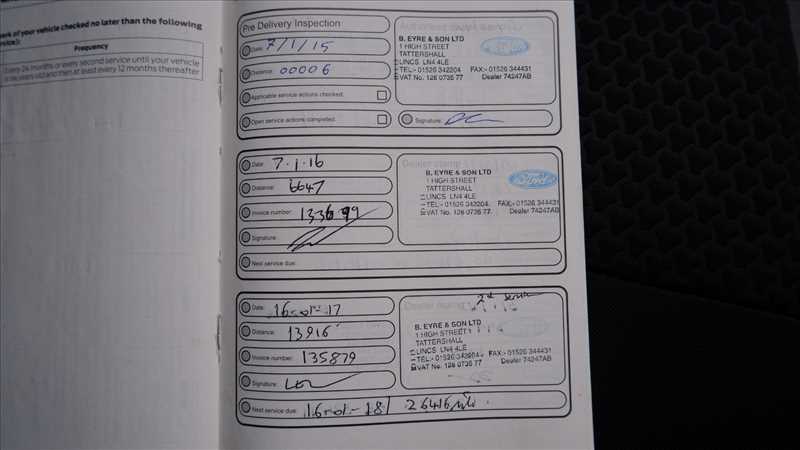 ark of your vehicle checked no later than the following
vice):
Frequency
Every 24 months or every second service until your vehicle
is six years old and then at least every 12 months thereafter
Pre Delivery Inspection
Date: 7/1/15
Distance: 00006
Applicable service actions checked:
Open service actions completed:
B. EYRE & SON LTD
1 HIGH STREET
TATTERSHALL
LINCS LN4 4LE
TEL:- 01526 342204 FAX:- 01526 344431
VAT No. 128 0735 77 Dealer 74247AB
Ford
Signature:
Date: 7.1.16
Distance: 6647
Invoice number:
Signature:
Next service due:
Dealer stamp
B. EYRE & SON LTD
1 HIGH STREET
TATTERSHALL
LINCS LN4 4LE
TEL:- 01526 342204 FAX:- 01526 344431
VAT No. 128 0735 77 Dealer 74247AB
Ford
Date: 16-01-17
Distance: 13916
Invoice number: 135879
Signature:
Next service due: 16-01-18 / 26416
Dealer stamp
2nd service
B. EYRE & SON LTD
1 HIGH STREET
TATTERSHALL
LINCS LN4 4LE
TEL:- 01526 342204 FAX:- 01526 344431
VAT No. 128 0735 77 Dealer 74247AB